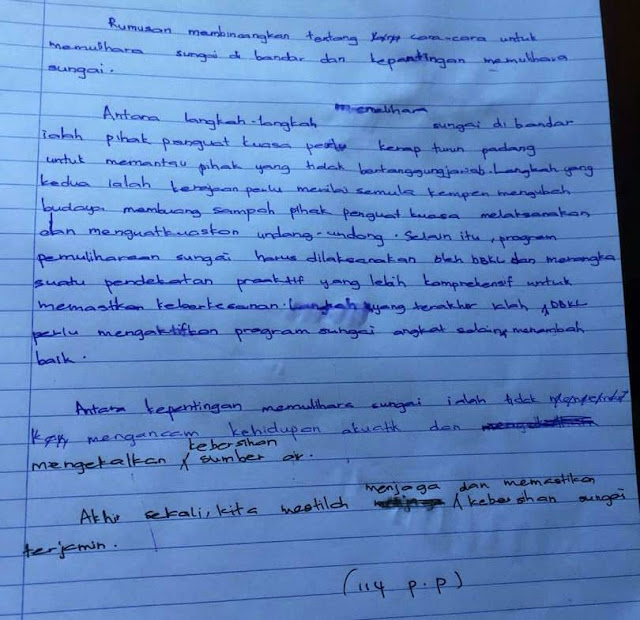 Rumusan membincangkan tentang cara-cara untuk
memulihara sungai di bandar dan kepentingan memulihara
sungai.
Antara langkah-langkah memelihara sungai di bandar
ialah pihak penguat kuasa perlu kerap turun padang
untuk memantau pihak yang tidak bertanggungjawab. Langkah yang
kedua ialah kerajaan perlu menilai semula kempen mengubah
budaya membuang sampah pihak penguat kuasa melaksanakan
dan menguatkuaskan undang-undang. Selain itu, program
pemuliharaan sungai harus dilaksanakan oleh DBKL dan merangka
suatu pendekatan proaktif yang lebih komprehensif untuk
memastikan keberkesanan. Langkah yang terakhir ialah DBKL
perlu mengaktifkan program sungai angkat menambah
baik.
Antara kepentingan memulihara sungai ialah tidak
mengancam kehidupan akuatik dan
mengekalkan kebersihan sumber air.
Akhir sekali, kita mestilah menjaga dan memastikan kebersihan sungai
terjamin.
(114 p.p)